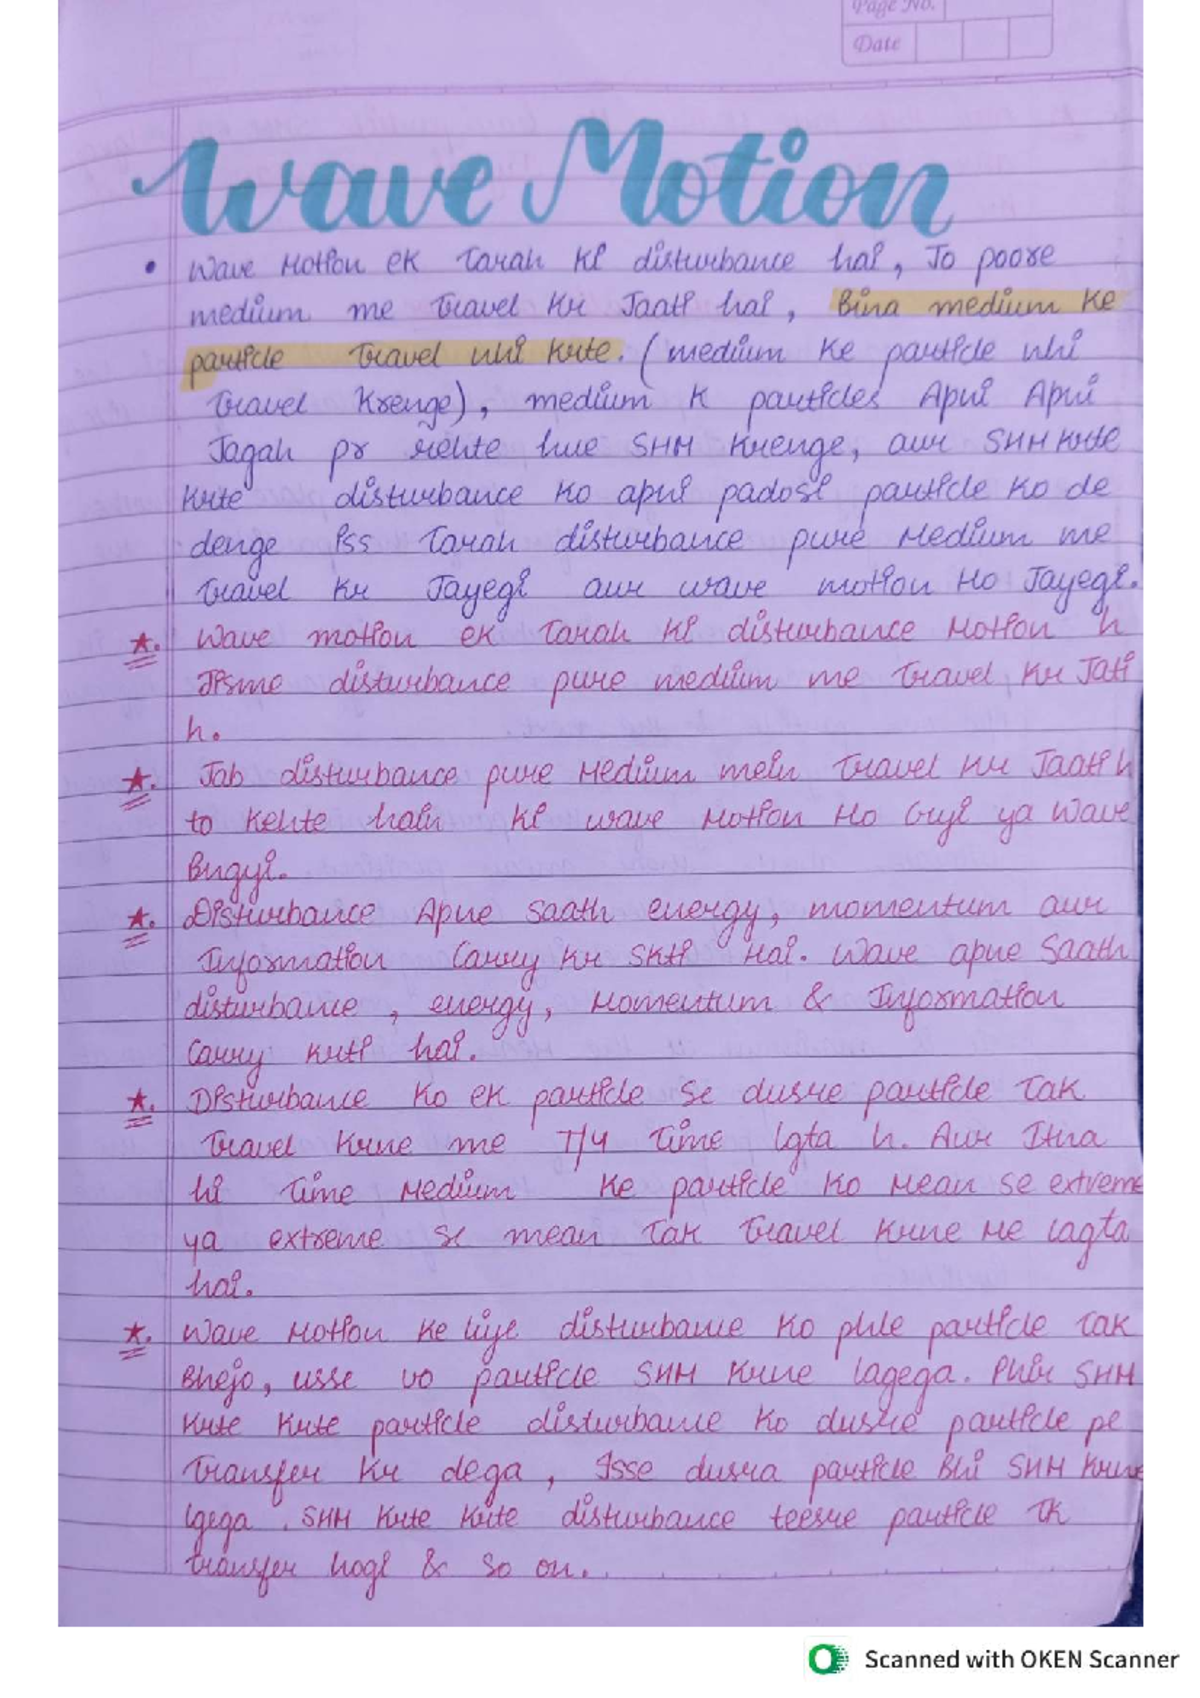 Page No.
Date
Wave Motion
• Wave Motion ek Tarah ki disturbance hai, Jo poore
medium me Travel kr Jaati hai, Bina medium ke
particle Travel nhi krte. (medium ke particle nhi
Travel Krenge), medium k particles Apni Apni
Jagah pr rehte hue SHM Krenge, aur SHM krte
krte disturbance ko apni padosi particle ko de
denge iss Tarah disturbance pure Medium me
Travel kr Jayegi aur wave motion Ho Jayegi.
★. Wave motion ek Tarah ki disturbance Motion h
Jisme disturbance pure medium me Travel kr Jati
h.
★. Jab disturbance pure Medium mein Travel kr Jaati h
to kehte hain ki wave Motion Ho Gyi ya Wave
Bngyi.
★. Disturbance Apne saath energy, momentum aur
Information Carry kr skti Hai. Wave apne Saath
disturbance, energy, Momentum & Information
Carry krti hai.
★. Disturbance ko ek particle se dusre particle Tak
Travel Krne me T/4 Time lgta h. Aur Itna
hi Time Medium ke particle ko Mean se extreme
ya extreme se mean Tak Travel krne Me lagta
hai.
★. Wave Motion ke liye disturbance ko phle particle Tak
Bhejo, usse vo particle SHM krne lagega. Phir SHM
krte krte particle disturbance ko dusre particle pe
Transfer kr dega, Isse dusra particle Bhi SHM krne
lgega. SHM krte krte disturbance teesre particle Tk
transfer hogi & so on.
Scanned with OKEN Scanner